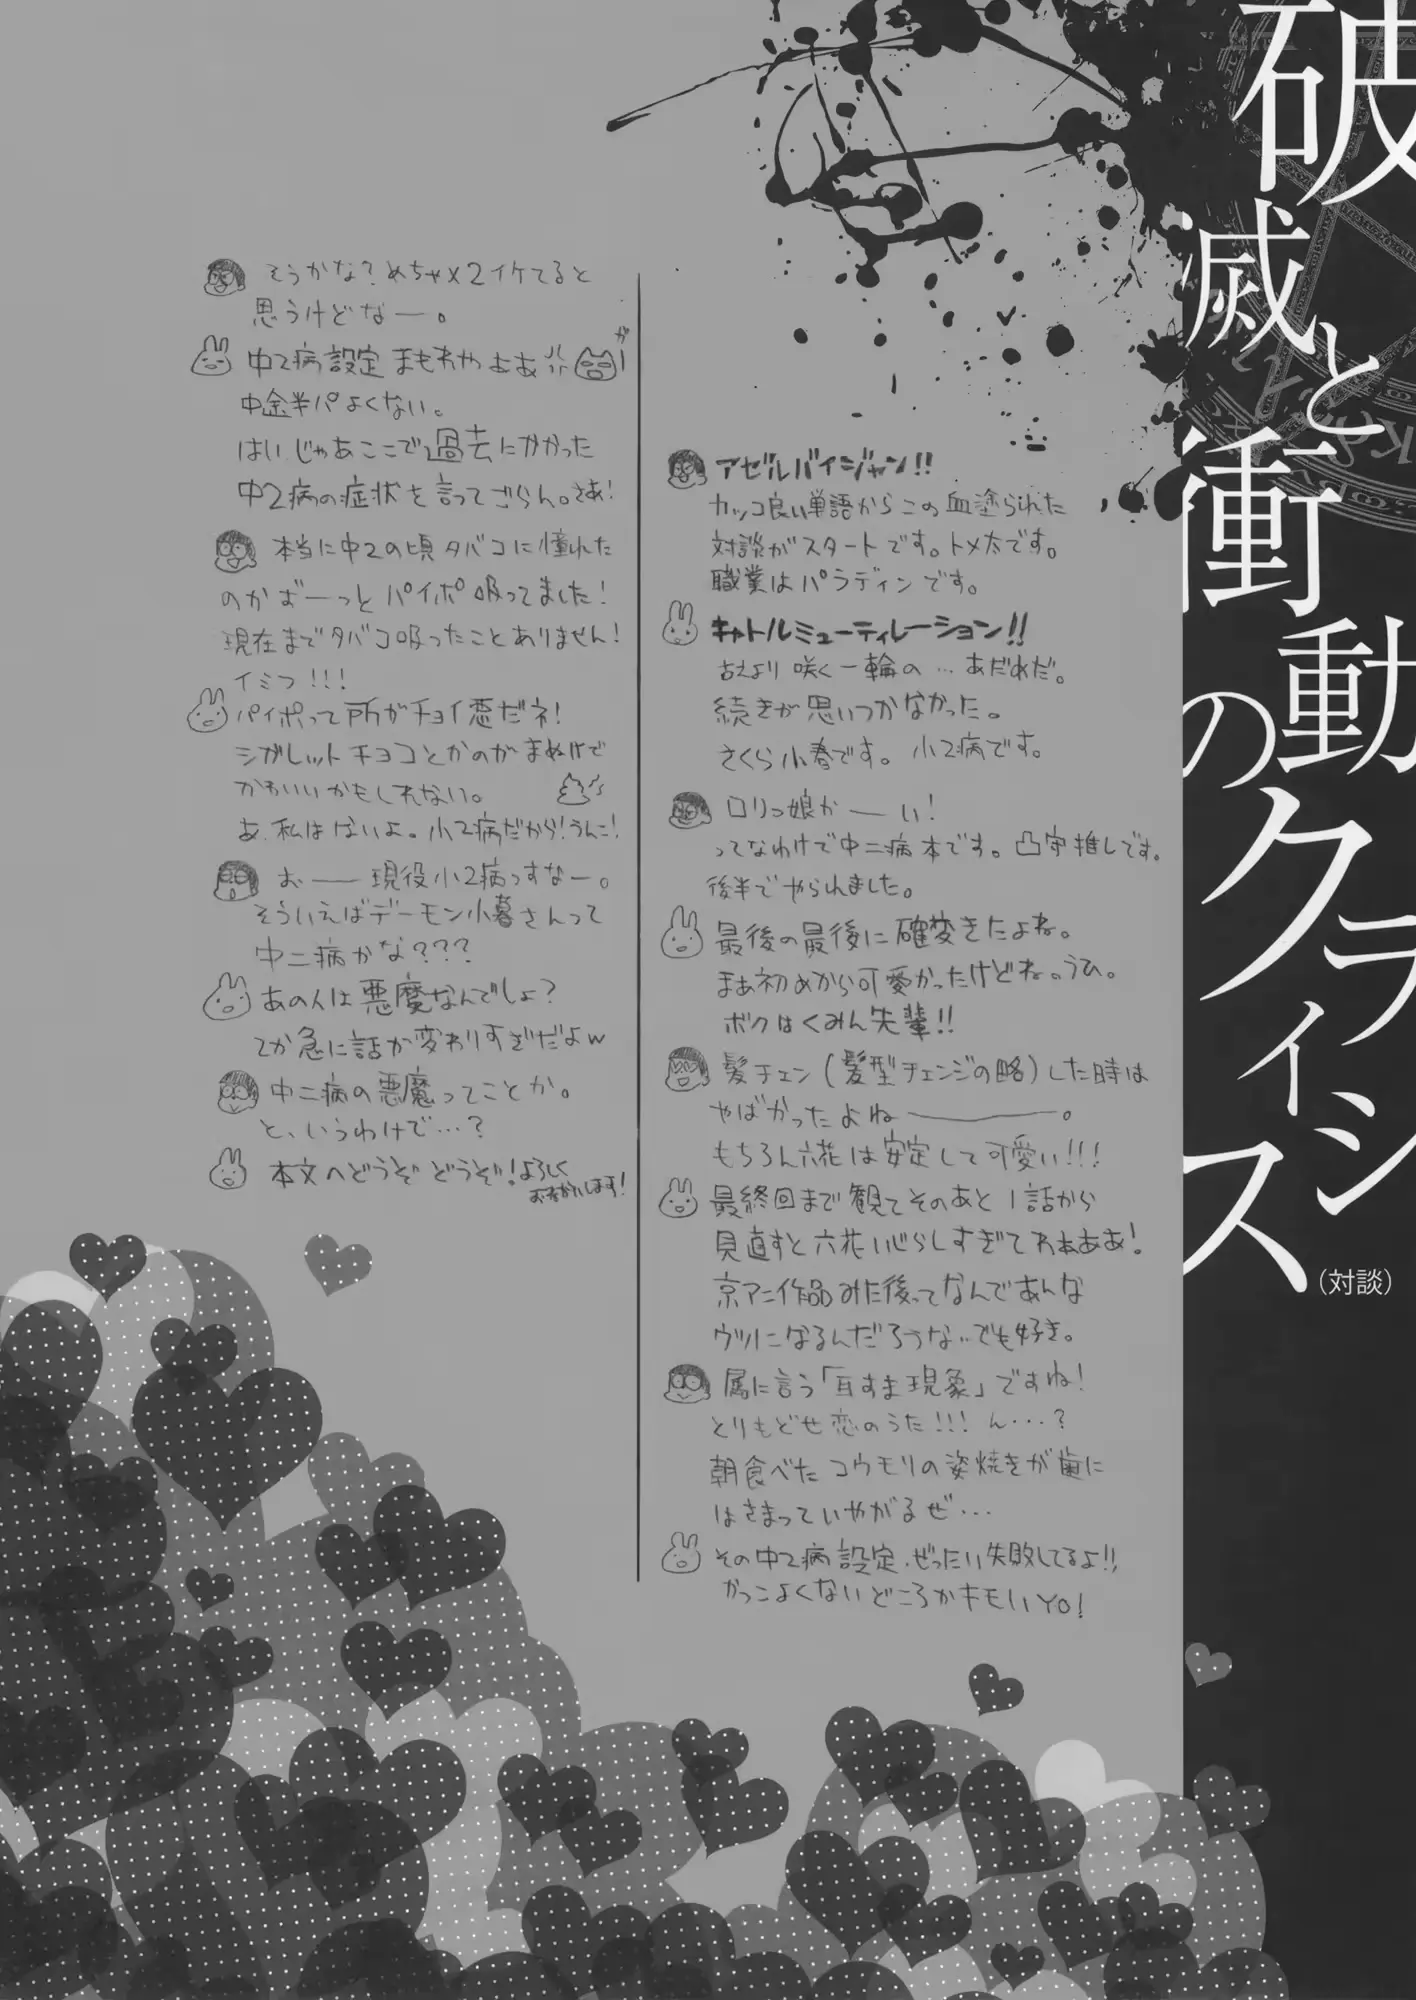 破滅と衝動のクライシス
(対談)
アゼルバイジャン!!
カッコ良い単語からこの血塗られた
対談がスタートです。トメ太です。
職業はパラディンです。
キャトルミューティレーション!!
古えより咲く一輪の…あだめだ。
続きが思いつかなかった。
さくら小春です。小2病です。
ロリっ娘かーい!
ってなわけで中二病本です。凸守推しです。
後半でやられました。
最後の最後に確変きたよね。
まぁ初めから可愛かったけどね。うひ。
ボクはくみん先輩!!
髪チェン(髪型チェンジの略)した時は
やばかったよねー。
もちろん六花は安定して可愛い!!!
最終回まで観てそのあと1話から
見直すと六花いじらしすぎてわぁああ!
京アニ作品みた後ってなんであんな
ウツになるんだろうな…でも好き。
属に言う「耳すま現象」ですね!
とりもどせ恋のうた!!!ん…?
朝食べたコウモリの姿焼きが歯に
はさまっていやがるぜ…
その中2病設定、ぜったい失敗してるよ!!
かっこよくないどころかキモいYO!
そうかな?めちゃメ2イケてると
思うけどなー。
中2病設定まもれやよぉ
がー
中途半パよくない。
はいじゃあここで過去にかかった
中2病の症状を言ってごらん。さあ!
本当に中2の頃タバコに憧れた
のかずーっとパイポ吸ってました!
現在までタバコ吸ったことありません!
イミフ!!!
パイポって所がチョイ悪だネ!
シガレットチョコとかのがまぬけで
かわいいかもしれない。
あ、私はないよ。小2病だから!うんこ!
おー現役小2病っすなー。
そういえばデーモン小暮さんって
中二病かな???
あの人は悪魔なんでしょ?
てか急に話が変わりすぎだよw
中二病の悪魔ってことか。
と、いうわけで…?
本文へどうぞどうぞ!よろしく
おねがいします!